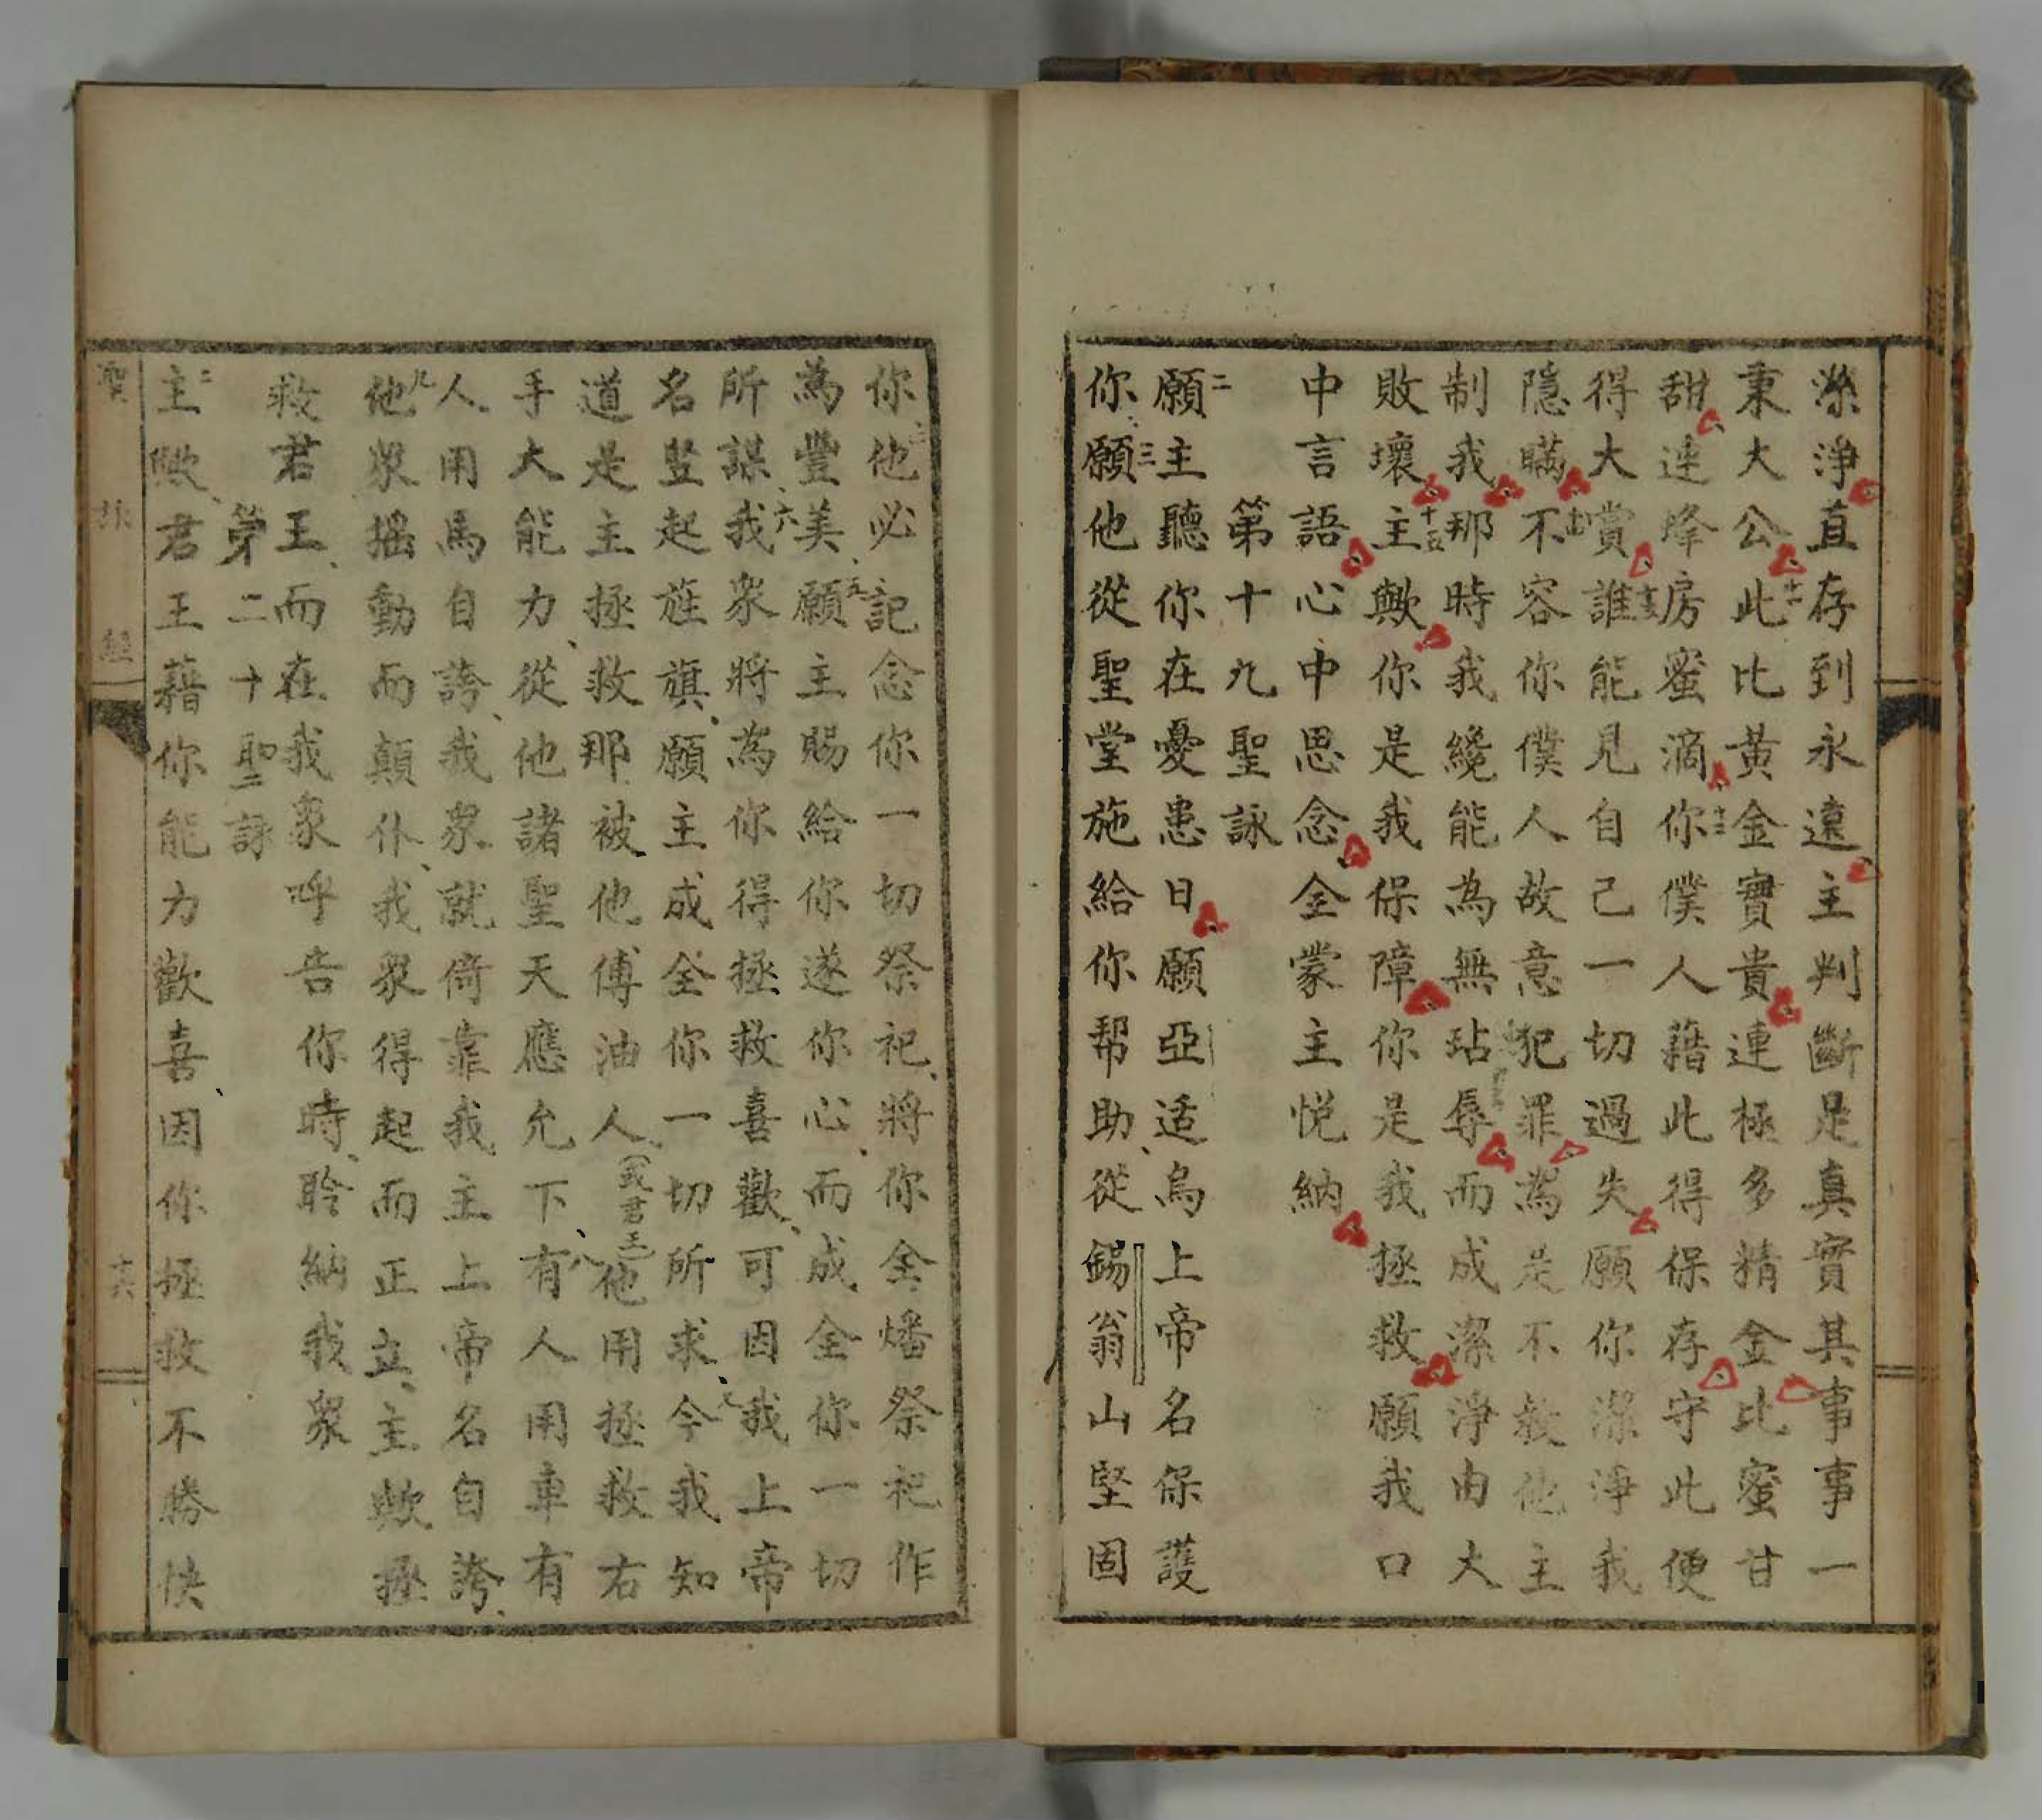 潔淨直存到永遠主判斷是真實其事事一
秉大公十一此比黃金實貴連極多精金比蜜甘
甜連蜂房蜜滴十二你僕人藉此得保存守此便
得大賞十三誰能見自己一切過失願你潔淨我
隱瞞十四不容你僕人故意犯罪為是不教他主
制我那時我纔能為無玷辱而成潔淨由大
敗壞十五主歟你是我保障你是我拯救願我口
中言語心中思念全蒙主悅納
第十九聖詠
二願主聽你在憂患日願亞适烏上帝名保護
你三願他從聖堂施給你帮助從錫翁山堅固
你他必記念你一切祭祀將你全燔祭祀作
為豐美五願主賜給你遂你心而成全你一切
所謀六我衆將為你得拯救喜歡可因我上帝
名豎起旌旗願主成全你一切所求七今我知
道是主拯救那被他傅油人(或君王)他用拯救右
手大能力從他諸聖天應允下八有人用車有
人用馬自誇我衆就倚靠我主上帝名自誇
九他衆搖動而顛仆我衆得起而正立主歟拯
救君王而在我衆呼告你時聆納我衆
第二十聖詠
二主歟君王藉你能力歡喜因你拯救不勝快
聖詠經 十六